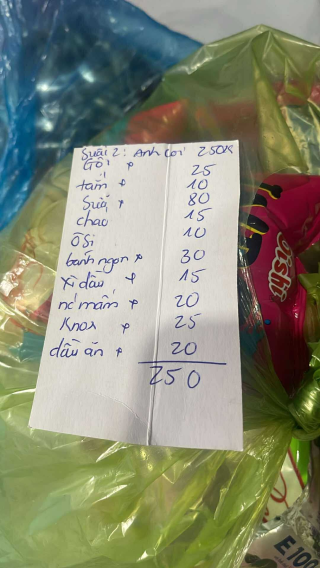 Suất 2: Anh Coi 250K
Gội * 25
tắm * 10
Sữa * 80
chao 15
ÔSi 10
bánh ngọn * 30
xì dầu * 15
nc mắm * 20
Knox * 25
dầu ăn * 20
250
OISHI
E100